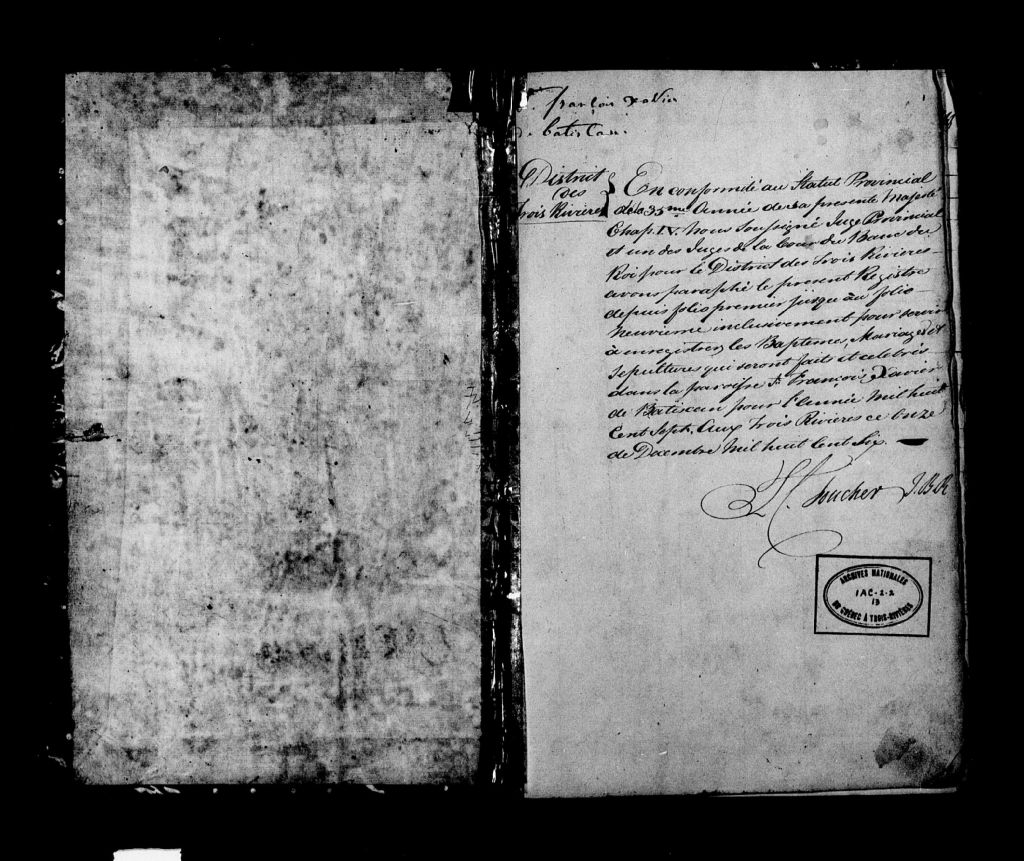 françois Xavier
de batiscan
District
des
Trois Rivieres
En conformité au Statut Provincial
de la 35me. Année de Sa presente Majesté
Chap. IV. Nous Soussigné Juge Provincial
et un des Juges de la Cour du Banc du
Roi pour le District des Trois Rivieres
avons paraphé le present Registre
depuis folio premier jusqu'au folio
Neuvieme inclusivement pour servir
à enregistrer les Baptemes, Mariages et
Sepultures qui seront faits et celebrés
dans la paroisse St. François Xavier
de Batiscan pour l'année Mil huit
Cent Sept. Aux Trois Rivieres ce
de Decembre Mil huit Cent Six.
L. C. Foucher J.B.R
ARCHIVES NATIONALES
1AC-2-2
13
DU QUÉBEC À TROIS-RIVIÈRES